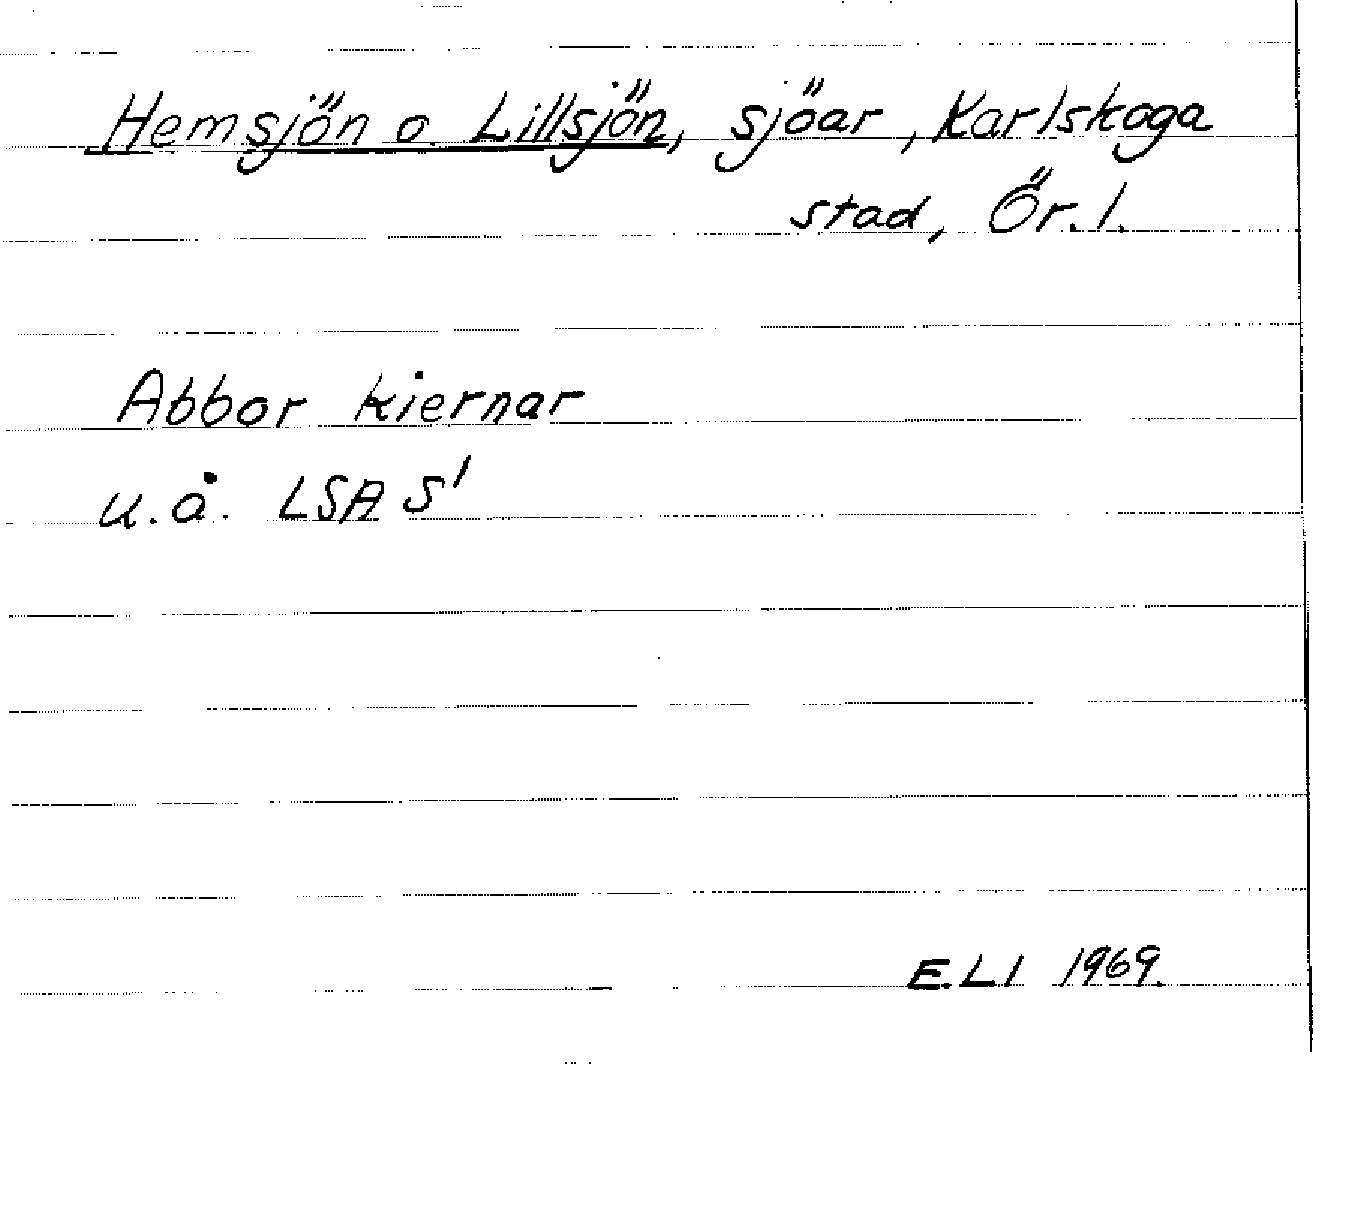 Hemsjön o. Lillsjön, sjöar, Karlskoga
stad, Ör. l.
Abbor kiernar
u.å. LSA S'
E.LI 1969.